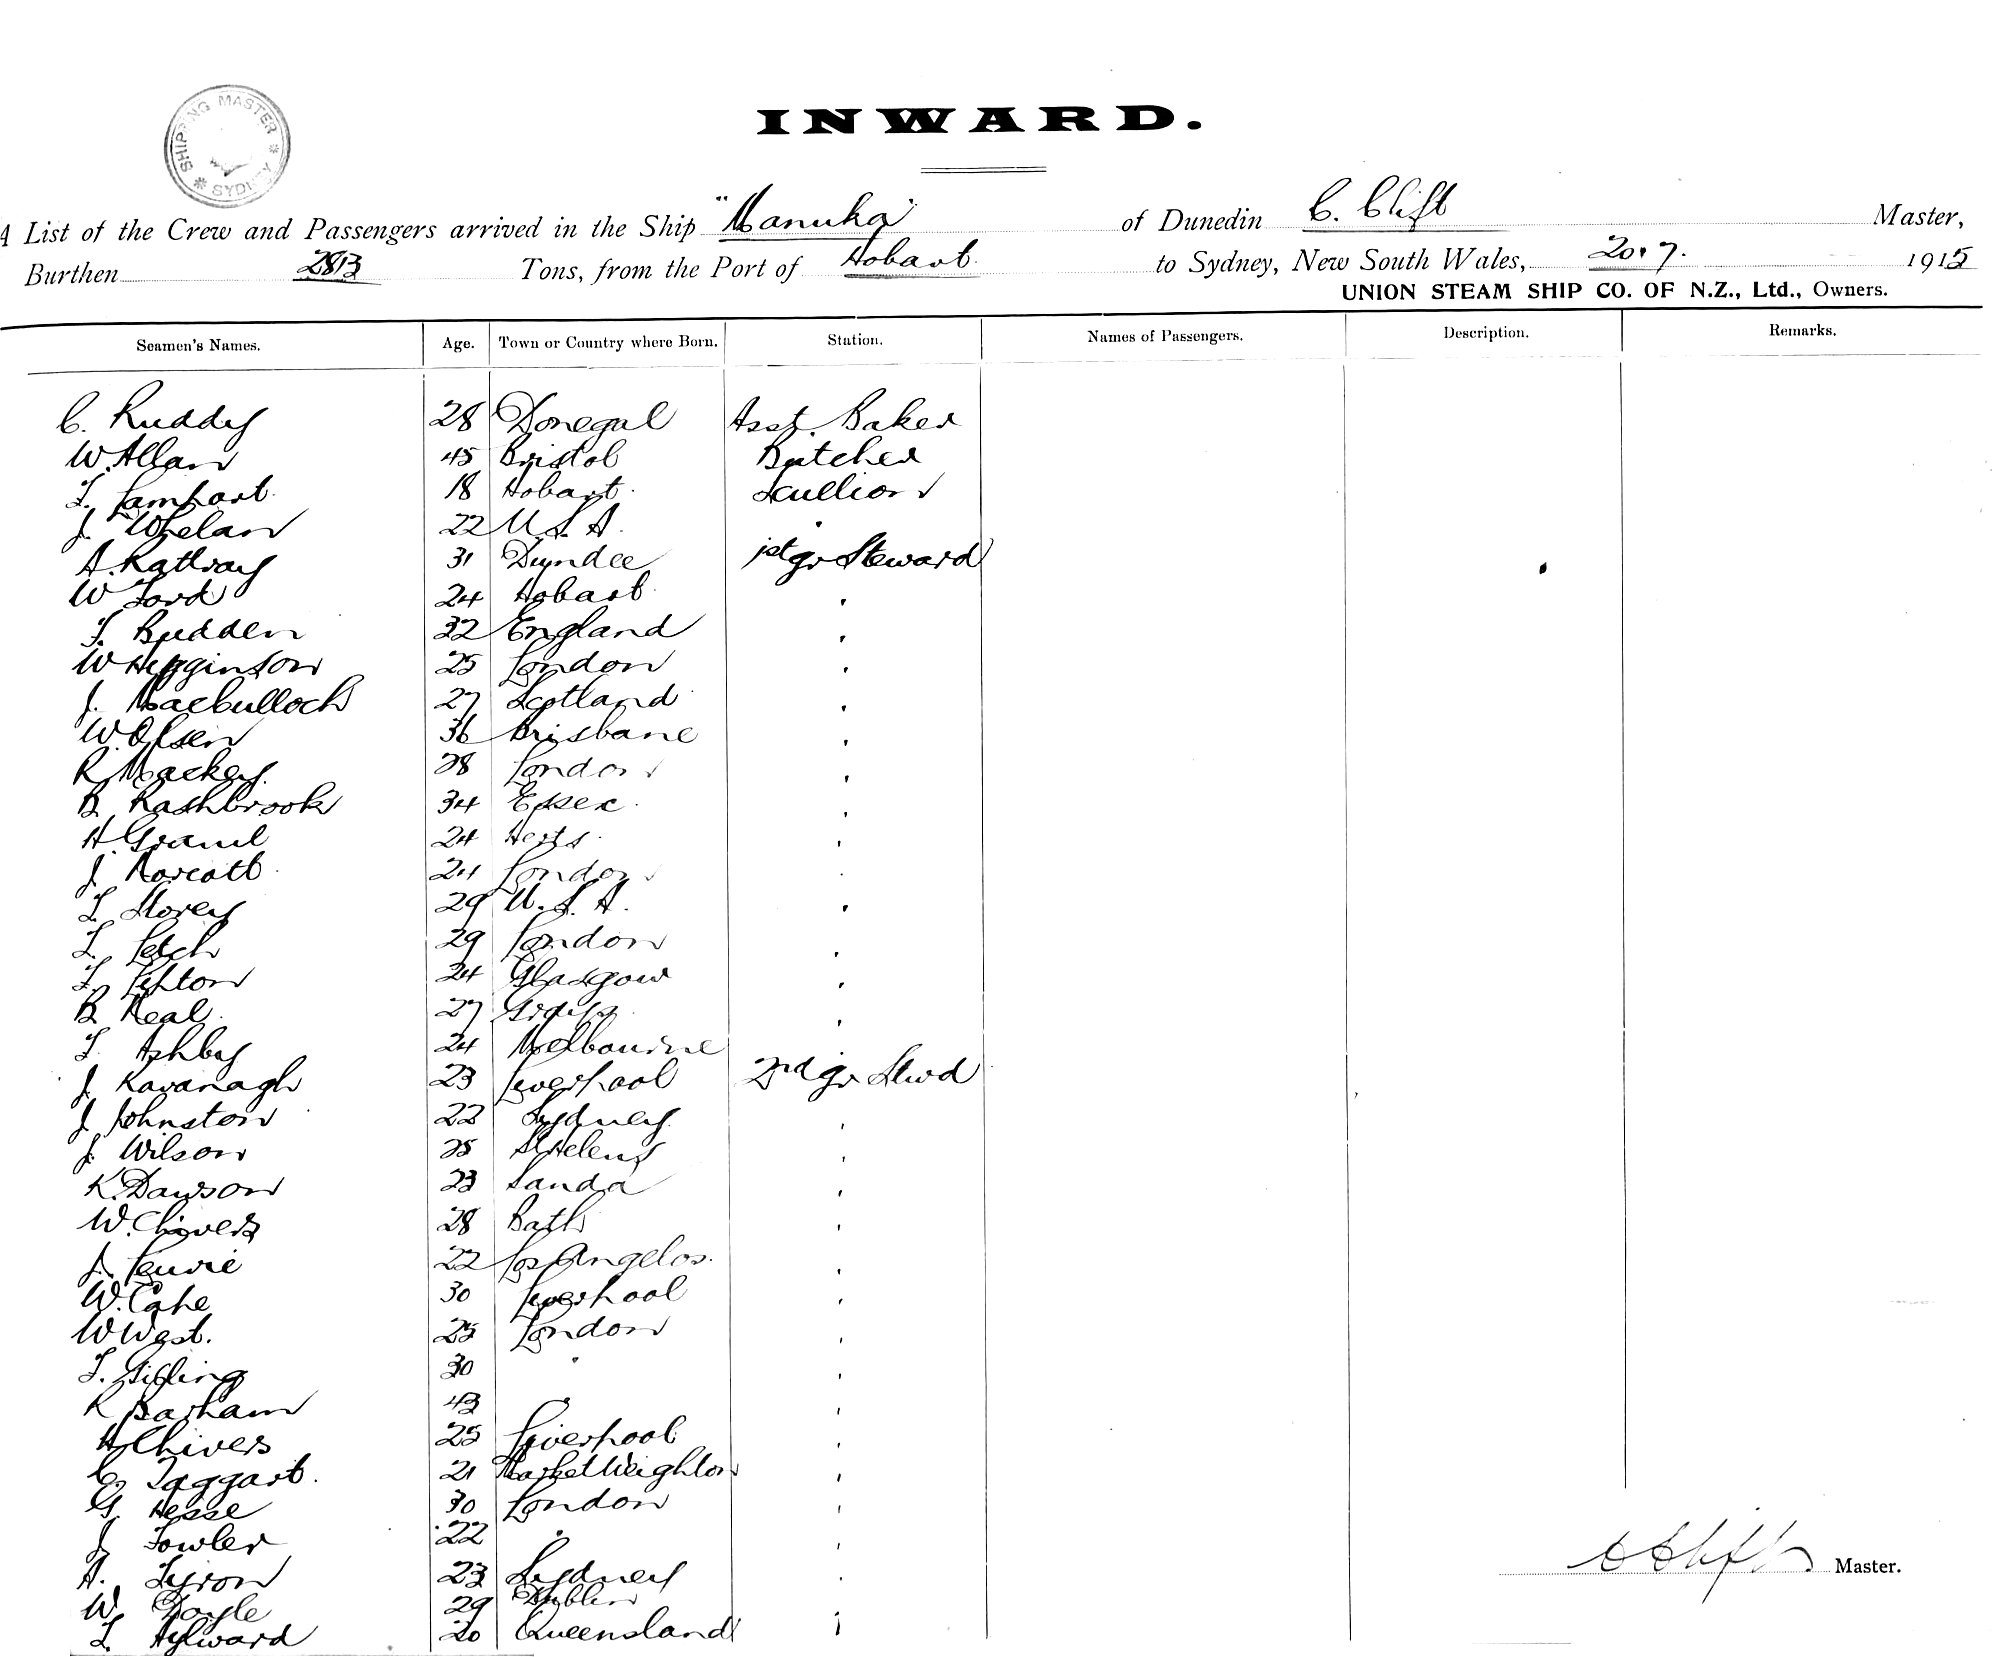 SHIPPING MASTER * SYDNEY *
INWARD.
A List of the Crew and Passengers arrived in the Ship "Manuka" of Dunedin C. Clift Master,
Burthen 2813 Tons, from the Port of Hobart to Sydney, New South Wales, 20.7. 1915
UNION STEAM SHIP CO. OF N.Z., Ltd., Owners.
Seamen's Names. Age. Town or Country where Born. Station. Names of Passengers. Description. Remarks.
C. Ruddy 28 Donegal Asst. Baker
W. Allan 45 Bristol Butcher
18 Hobart. Scullion
J. Whelan 22 U.S.A. "
A. Rattray 31 Dundee 1st gr Steward
W Ford 24 Hobart "
F. Budden 32 England "
W Higginson 25 London "
J. MacCulloch 27 Scotland "
W. Olsen 36 Brisbane "
R. Mackey. 38 London "
B Rashbrook 34 Essex "
H 24 Herts "
J Norcott 24 London "
L Storey 29 U.S.A. "
29 London "
24 Glasgow "
B Neal 27 "
F Ashby 24 Melbourne "
J. Kavanagh 23 Liverpool 2nd gr Stwd
J Johnston 22 Sydney. "
J. Wilson 35 St Helens "
K. Dawson 23 "
W. Chivers 28 Bath "
J. 22 Los Angelos. "
W. Cape 30 Liverpool "
W West. 25 London "
30 " "
R Barham 43 "
A Chivers 25 Liverpool "
C. Taggart. 21 Market Weighton "
G. Hesse 30 London "
J Fowler 22 " "
A. 23 Sydney "
W. Doyle 29 Dublin "
L. Aylward 20 Queensland "
C Clift Master.